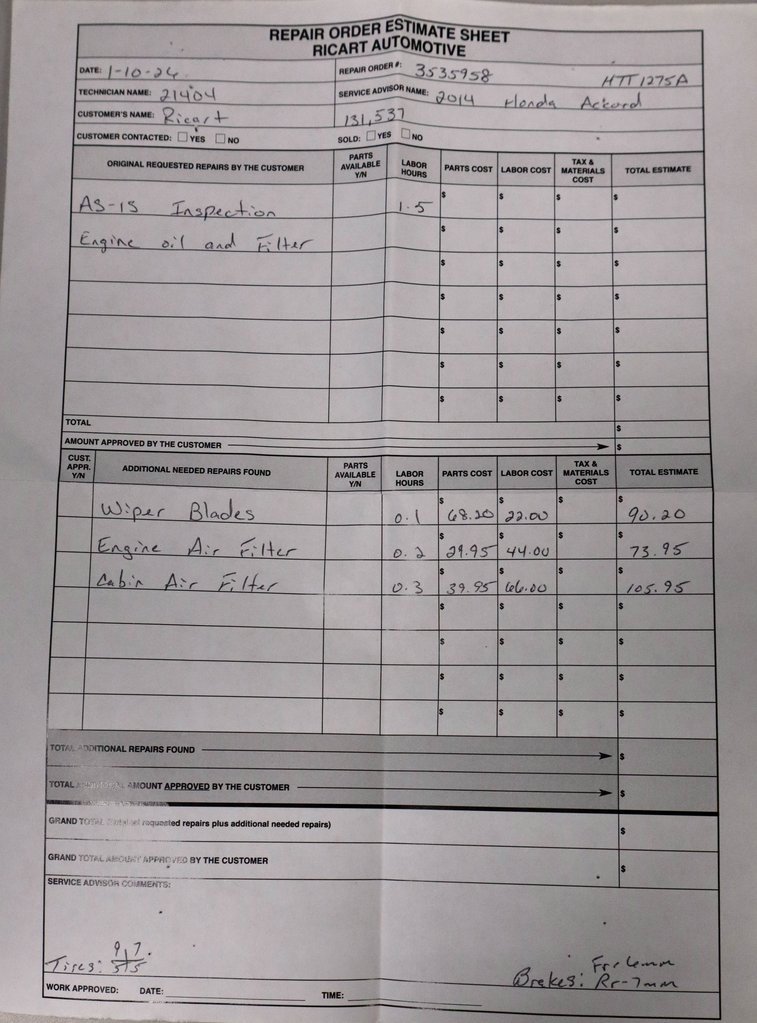 REPAIR ORDER ESTIMATE SHEET
RICART AUTOMOTIVE
DATE: 1-10-24 REPAIR ORDER #: 3535958 HTT1275A
TECHNICIAN NAME: 21404 SERVICE ADVISOR NAME: 2014 Honda Accord
CUSTOMER'S NAME: Ricart 131,537
CUSTOMER CONTACTED: YES NO SOLD: YES NO
ORIGINAL REQUESTED REPAIRS BY THE CUSTOMER PARTS AVAILABLE Y/N LABOR HOURS PARTS COST LABOR COST TAX & MATERIALS COST TOTAL ESTIMATE
AS-IS Inspection 1.5 $ $ $ $
Engine oil and Filter $ $ $ $
$ $ $ $
$ $ $ $
$ $ $ $
$ $ $ $
$ $ $ $
TOTAL $
AMOUNT APPROVED BY THE CUSTOMER $
CUST. APPR. Y/N ADDITIONAL NEEDED REPAIRS FOUND PARTS AVAILABLE Y/N LABOR HOURS PARTS COST LABOR COST TAX & MATERIALS COST TOTAL ESTIMATE
Wiper Blades 0.1 $ 68.20 $ 22.00 $ $ 90.20
Engine Air Filter 0.2 $ 29.95 $ 44.00 $ $ 73.95
Cabin Air Filter 0.3 $ 39.95 $ 66.00 $ $ 105.95
$ $ $ $
$ $ $ $
$ $ $ $
$ $ $ $
TOTAL ADDITIONAL REPAIRS FOUND $
TOTAL ADDITIONAL AMOUNT APPROVED BY THE CUSTOMER $
GRAND TOTAL (total of requested repairs plus additional needed repairs) $
GRAND TOTAL AMOUNT APPROVED BY THE CUSTOMER $
SERVICE ADVISOR COMMENTS:
9 7
Tires: 5 5
Fr-6mm
Brakes: Rr-7mm
WORK APPROVED: DATE: TIME: